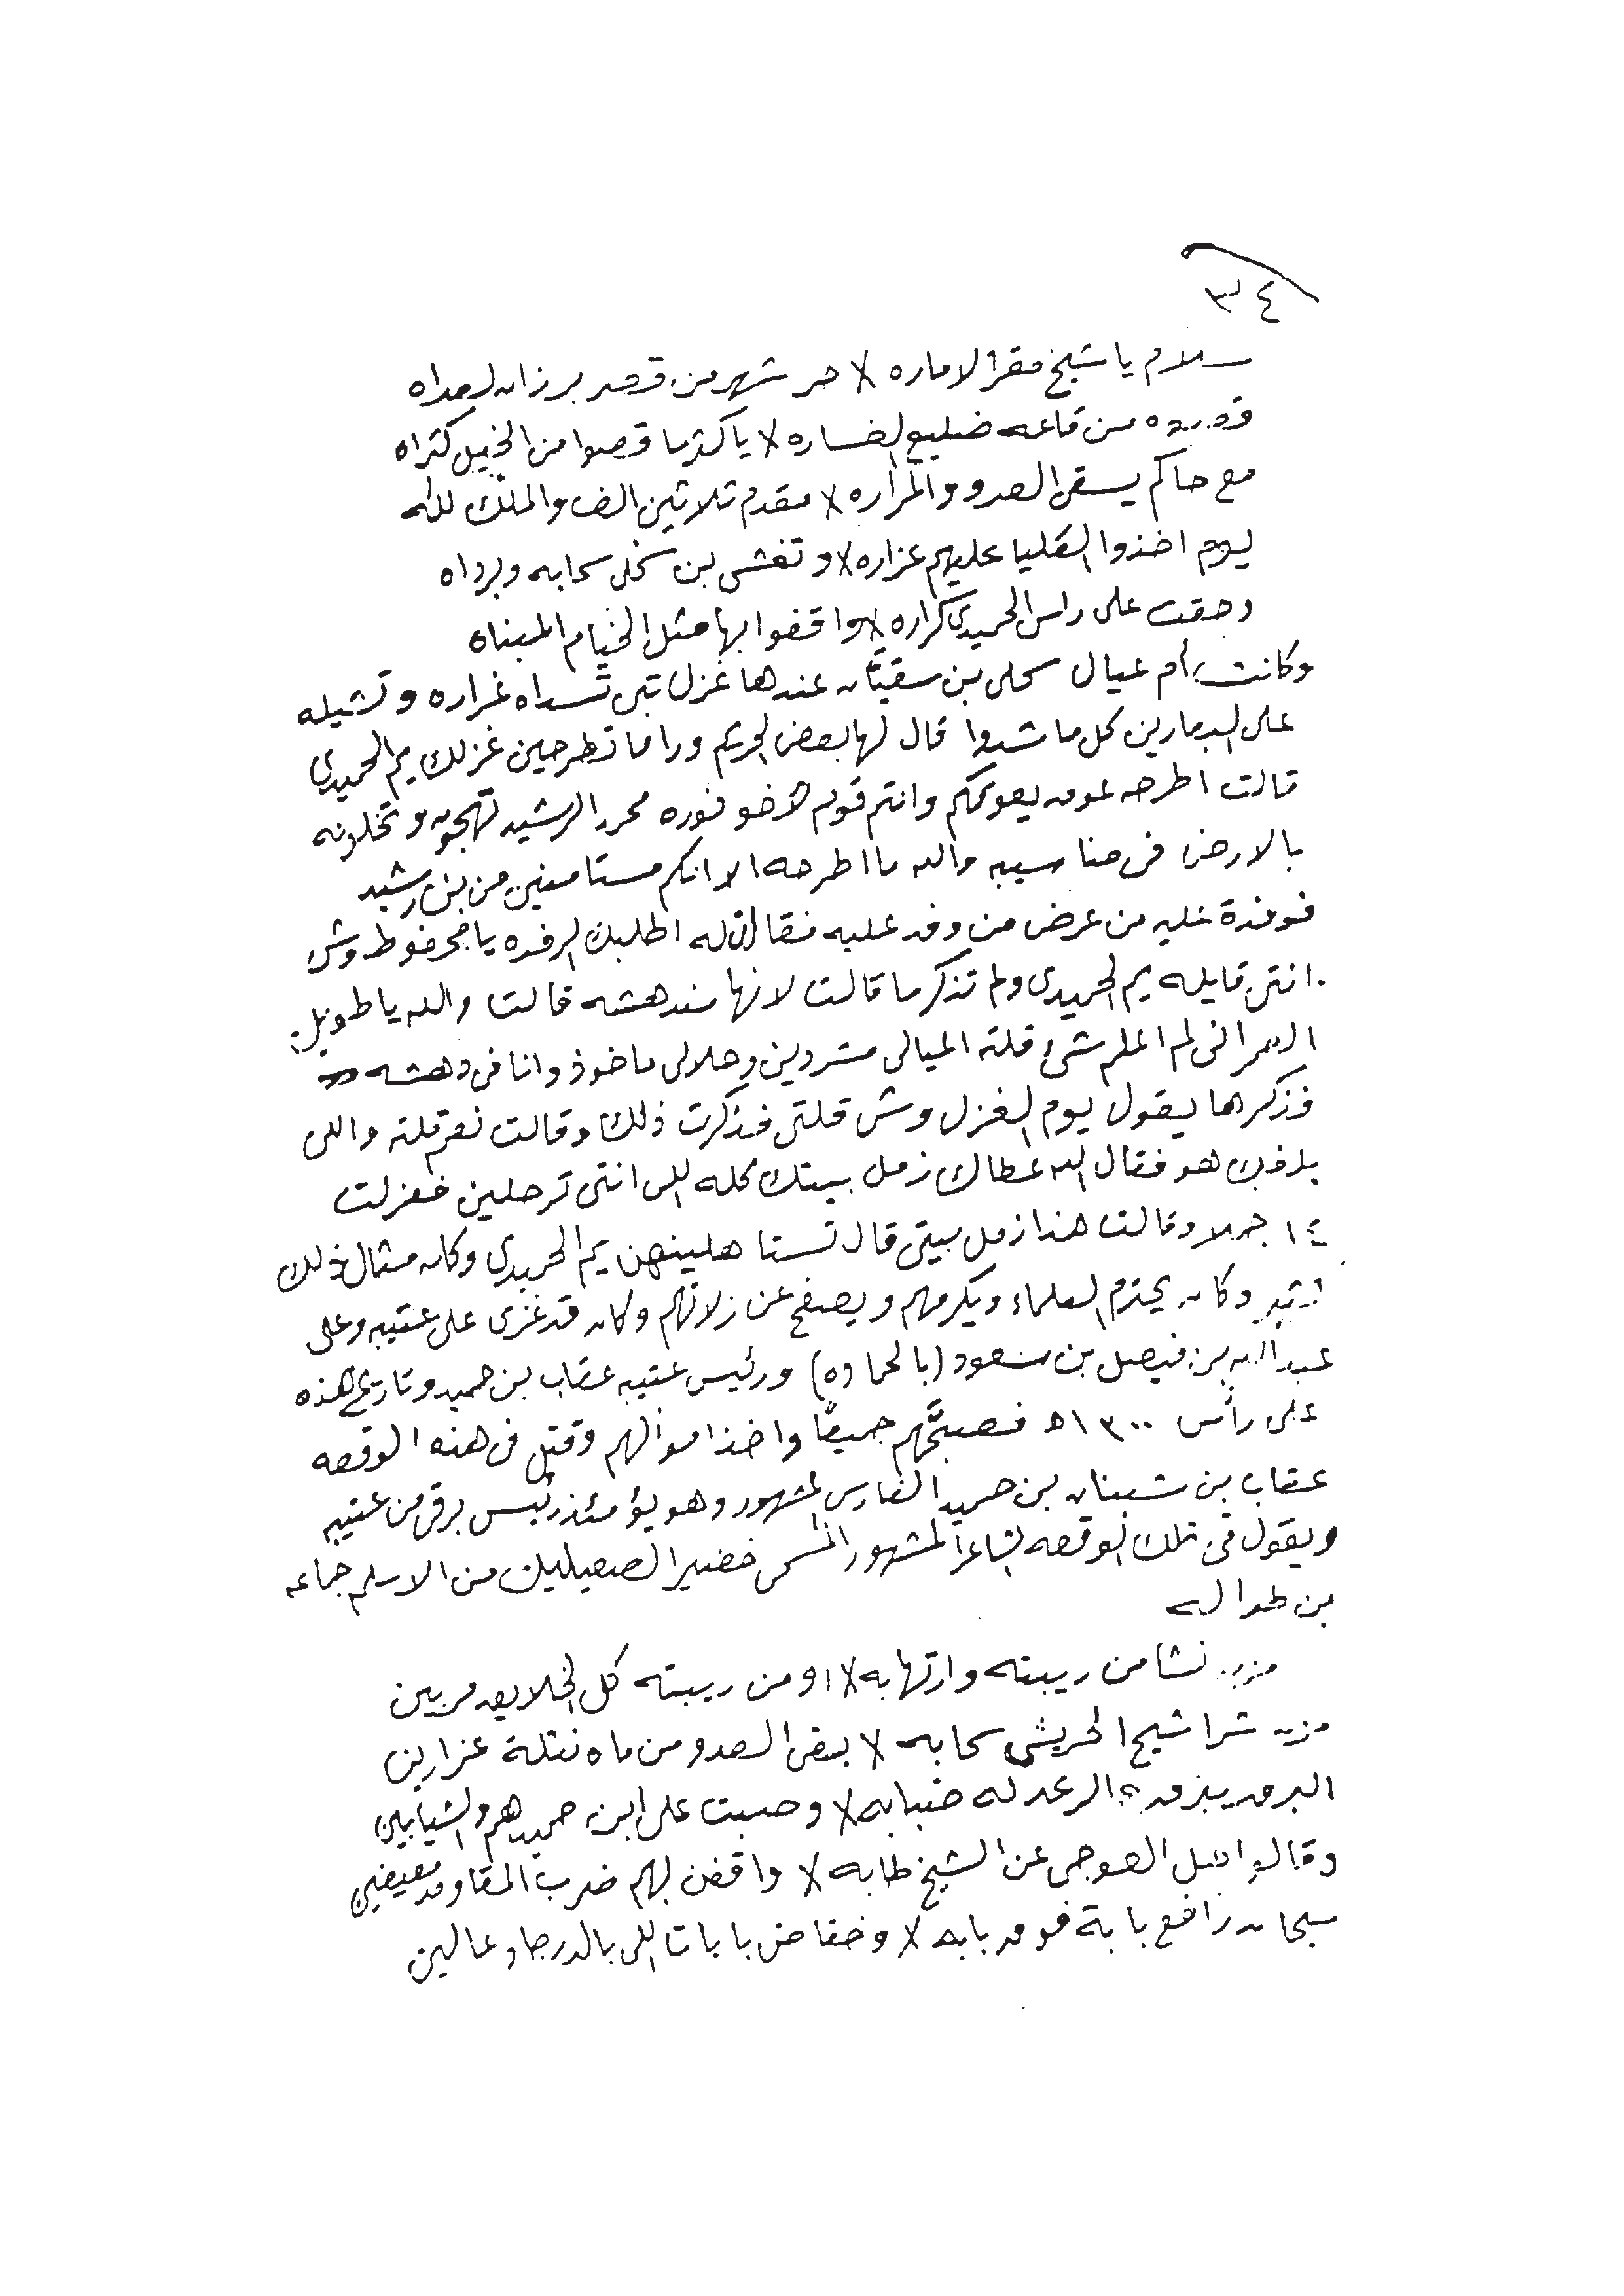 ٣٤
سلام يا شيخ مقر الاماره × حر شهر من قصر برزان لعداه
من قاعه ضليع الخساره × يا كثر ما قصوا من الخيل كثراه
مع حاكم يسقى العدو المراره × مقدم ثلاثين الف والملك لله
ليوم اخذوا العليا عليهم غزاره × وتغشى بن سحلى سحابه وبرداه
وحقت على راس الحميدى كراره × واقفوا بها مثل الخيام المبناه
وكانت أم عيال سحلى بن سقيان عندها غزل تبى تسداه غراره وتشيله
على البعارين كل ما شدوا قال لها بعض الحريم ورا ما تطرحين غزلك يم الحميدى
قالت اطرحه عوق يعوقكم وانتم قوم لأخو نوره محمد الرشيد تهجونه وتخلونه
بالارض فى مناسيبه والله ما اطرحه الا انكم مستامنين من بن رشيد
فوفدة عليه من عرض من وفد عليه فقال له اطلبك الرفده يا محفوظ وش
انتى قايله يم الحميدى ولم تذكر ما قالت لانها مندهشه قالت والله يا طويل
العمر انى لم اعلم شئ قلته العيالى مشردين وحلالى ماخوذ وانا فى دهشه
فذكرها يقول يوم الغزل وش قلتى فذكرت ذلك وقالت نعم قلته واللى
بلغك هو فقال الله عطاك زمل بيتك كله اللى انتى ترحلين فعزلت
١٤ جملا وقالت هذا زمل بيتى قال تستاهلينهن يم الحميدى وكان مثال ذلك
كثير وكان يحترم العلماء ويكرمهم ويصفح عن زلاتهم وكان قد غزى على عتيبه وعلى
عبدالله بن فيصل بن سعود (بالحماده) ورئيس عتيبه عقاب بن حميد وتاريخ هذه
على رأس ١٣٠٠ه فصبّحهم جميعًا واخذ اموالهم وقتل فى هذه الوقعه
عقاب بن شبنان بن حميد الفارس المشهور وهو يؤمئذ رئيس برقى من عتيبه
ويقول فى تلك الوقعه الشاعر المشهور المسمى خضير الصعيليك من الاسلم جماعه
بن طواله
مزن نشا من ريبته وارتهابه × او من ريبته كل الخلايق مريبين
مزن شرا شيح الحريشى سحابه × يسقى العدو من ماه نقلة غزارين
البرق يبرق والرعد له ضبابه × وصبت على ابن حميد هم والشيابين
وقال اهل العوجى عن الشيخ طابه × واقفن لهم ضرب المقاود مقيضين
سبحان رافع بابة فوق بابه × وخفاض بابات اللى بالدرجا عالين